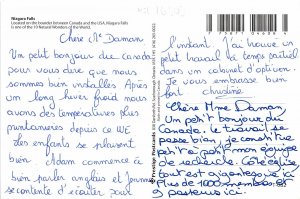 Niagara Falls
Located on the border between Canada and the USA, Niagara Falls
is one of the 10 Natural Wonders of the World.
Chère Me Daman
Un petit bonjour du Canada
pour vous dire que nous
sommes bien installés. Après
un long hiver froid nous
avons des températures plus
printanières depuis ce WE
des enfants se plaisent
bien. Adam commence à
bien parler anglais et
se contente d'écouter pour
l'instant. J'ai trouvé un
petit travail à temps partiel
dans un cabinet d'opticien.
Je vous embrasse bien
fort christine
Chère Mme Daman
un petit bonjour du
Canada. le travail se
passe bien, je construis
petit à petit mon équipe
de recherche. Côté église
tout est gigantesque ici
Plus de 1000 membres et
9 pasteurs ici.